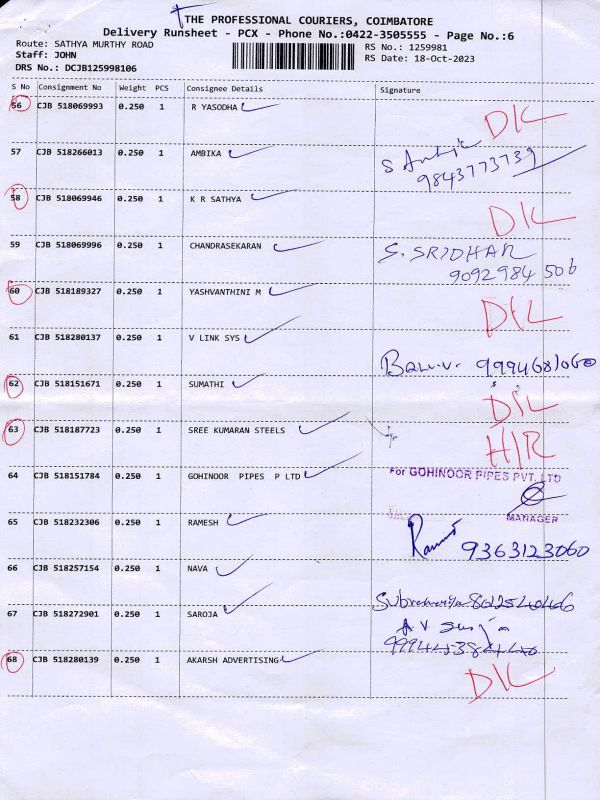 THE PROFESSIONAL COURIERS, COIMBATORE
Delivery Runsheet - PCX - Phone No.:0422-3505555 - Page No.:6
Route: SATHYA MURTHY ROAD RS No.: 1259981
Staff: JOHN RS Date: 18-Oct-2023
DRS No.: DCJB125998106
S No Consignment No Weight PCS Consignee Details Signature
56 CJB 518069993 0.250 1 R YASODHA D/L
57 CJB 518266013 0.250 1 AMBIKA S
9843773739
58 CJB 518069946 0.250 1 K R SATHYA D/L
59 CJB 518069996 0.250 1 CHANDRASEKARAN S. SRIDHAR
9092984506
60 CJB 518189327 0.250 1 YASHVANTHINI M D/L
61 CJB 518280137 0.250 1 V LINK SYS 9994681060
62 CJB 518151671 0.250 1 SUMATHI D/L
63 CJB 518187723 0.250 1 SREE KUMARAN STEELS H/R
64 CJB 518151784 0.250 1 GOHINOOR PIPES P LTD For GOHINOOR PIPES PVT. LTD
MANAGER
65 CJB 518232306 0.250 1 RAMESH 9363123060
66 CJB 518257154 0.250 1 NAVA
67 CJB 518272901 0.250 1 SAROJA A V
68 CJB 518280139 0.250 1 AKARSH ADVERTISING D/L